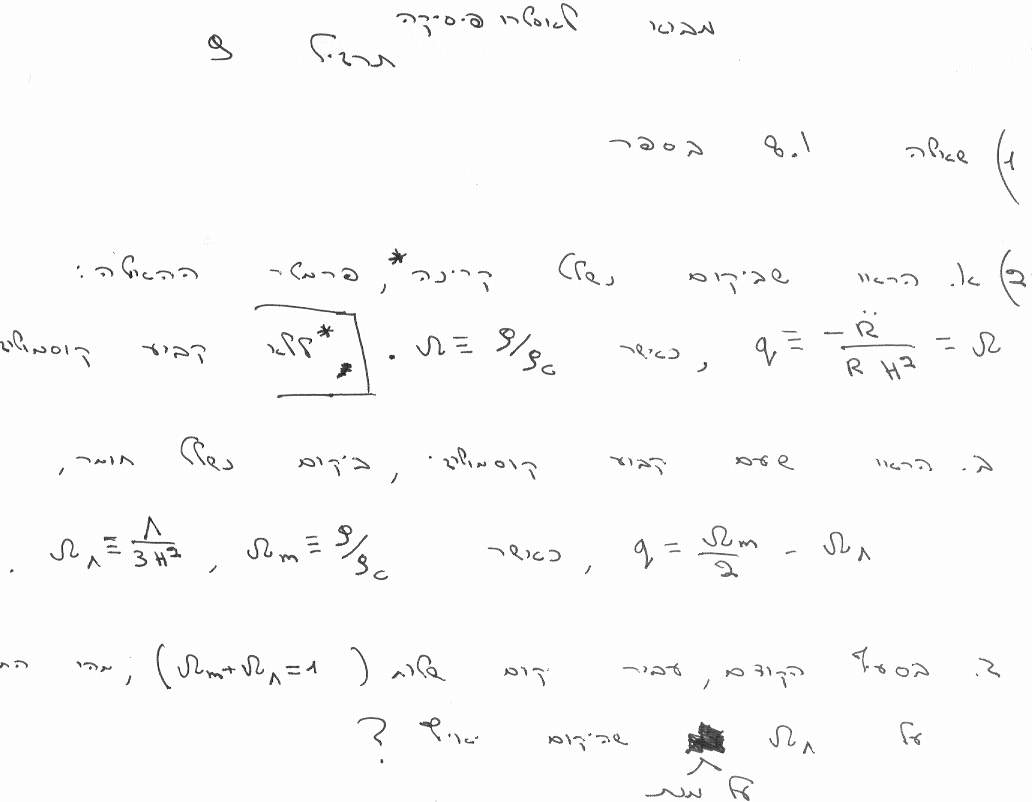 מבוא לאסטרו פיסיקה
תרגיל 9
1) שאלה 8.1 בספר
2) א. הראו שביקום נשלט קרינה*, פרמטר ההאטה:
q ≡ -R̈ / (R H²) = Ω , כאשר Ω ≡ ρ/ρc . *ללא קבוע
ב. הראו שעם קבוע קוסמולוגי, ביקום נשלט חומר,
q = Ωm/2 - ΩΛ , כאשר Ωm ≡ ρ/ρc , ΩΛ ≡ Λ/3H² .
ג. בסעיף הקודם, עבור יקום שטוח (Ωm+ΩΛ=1), מהי
על ΩΛ על מנת שהיקום יאיץ?